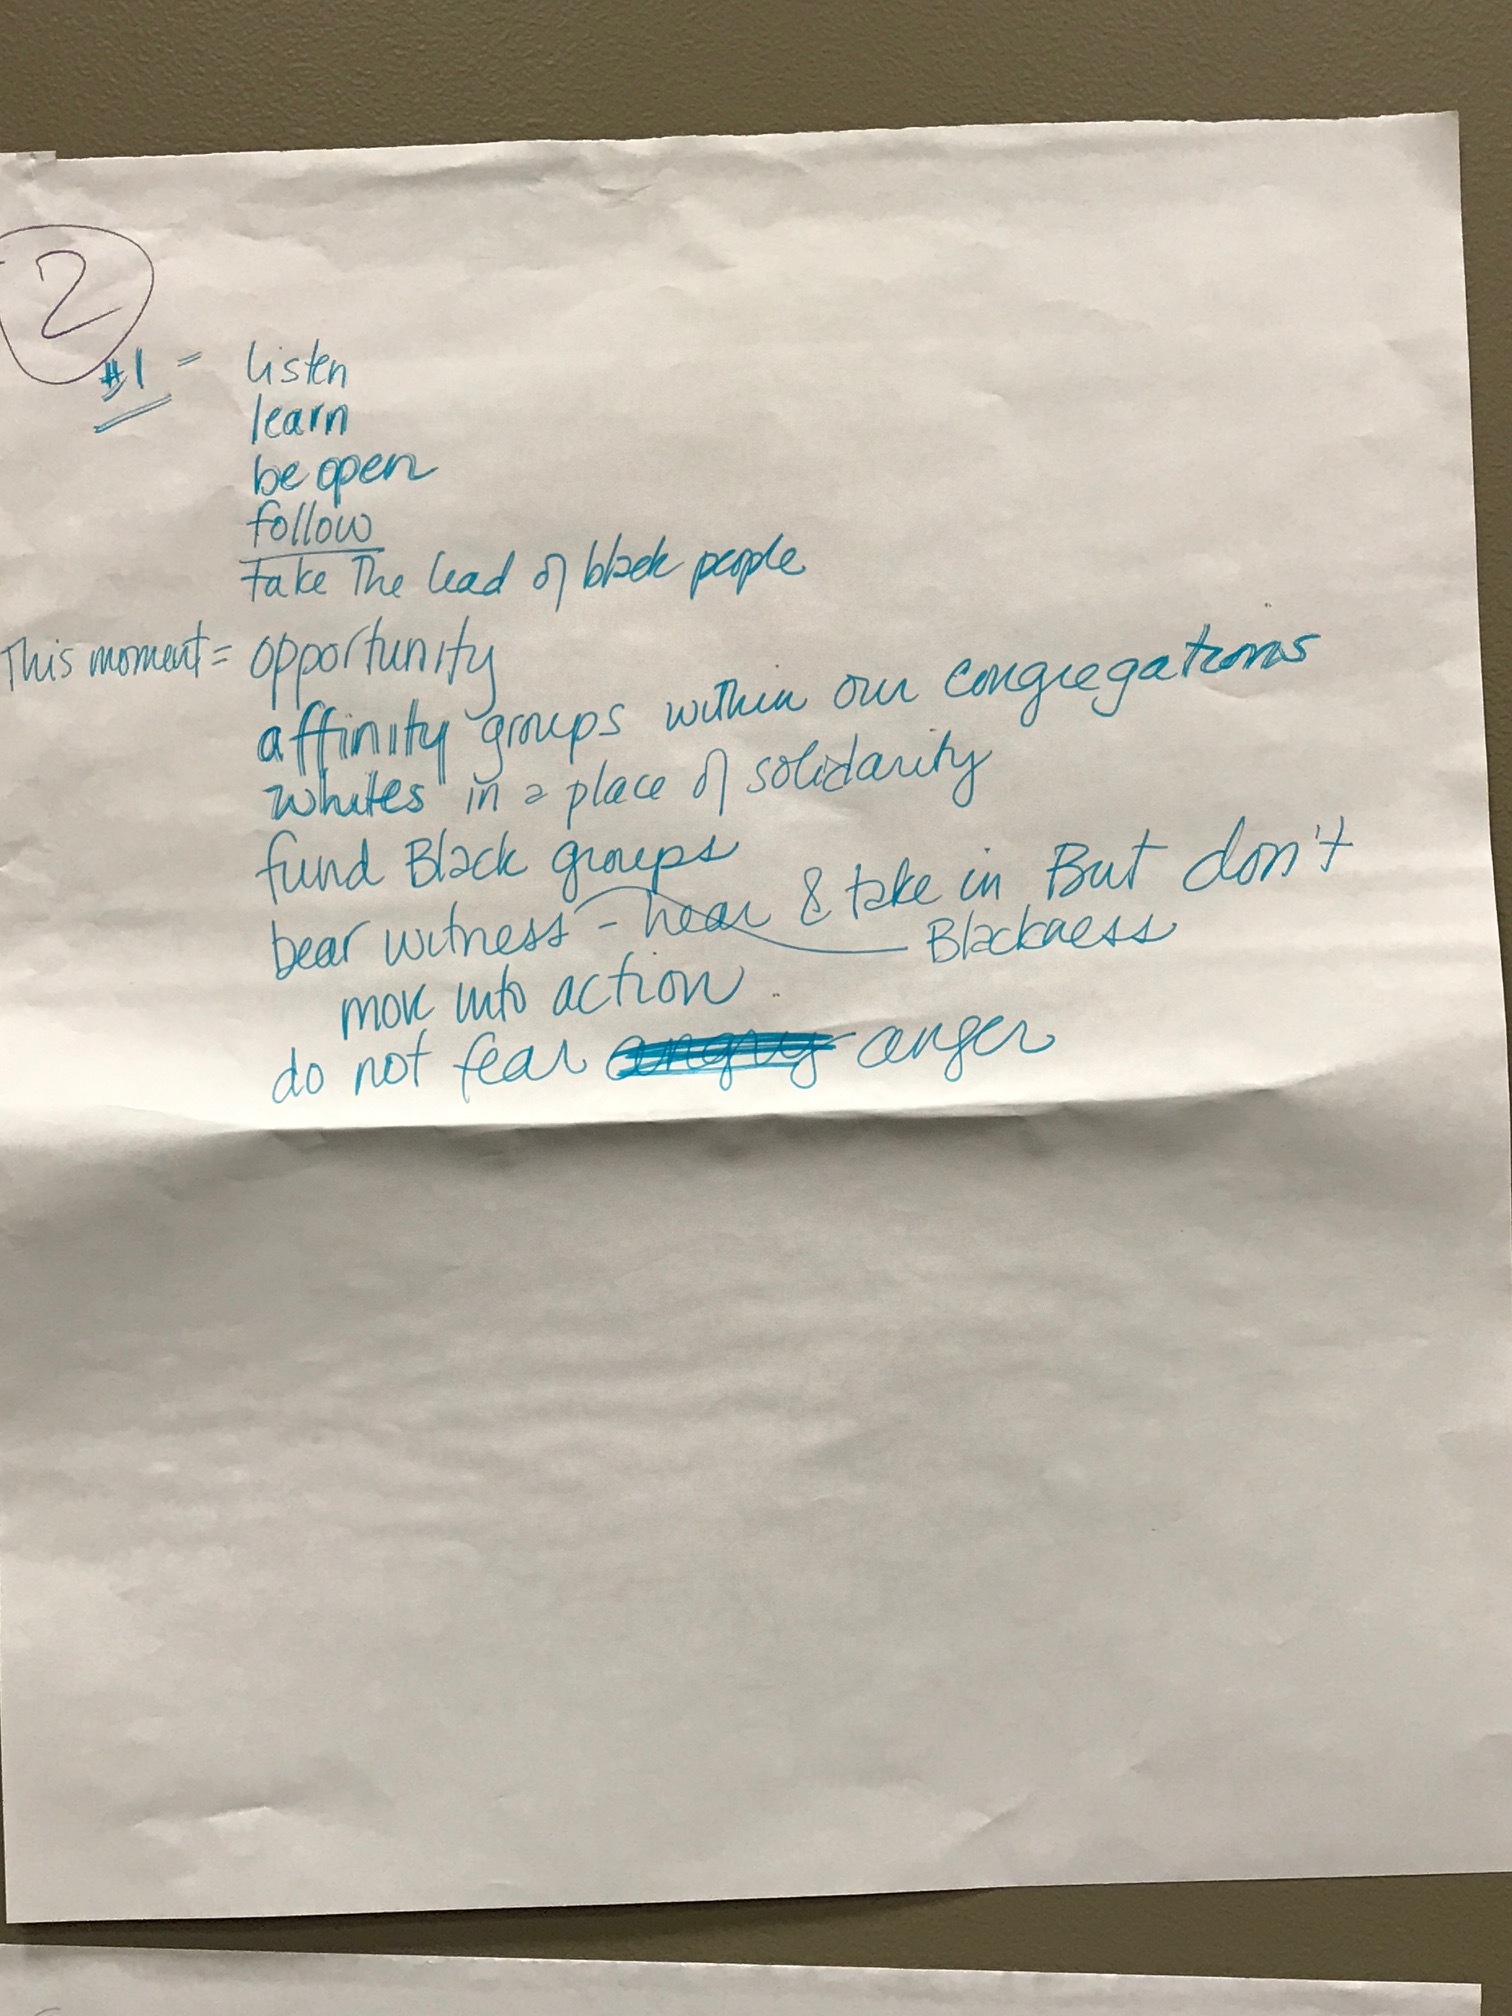 2
#1 = listen
learn
be open
follow
take The lead of black people
This moment = opportunity
affinity groups within our congregations
whites in a place of solidarity
fund Black groups
bear witness - hear & take in But don't
Blackness
move into action
do not fear angry anger